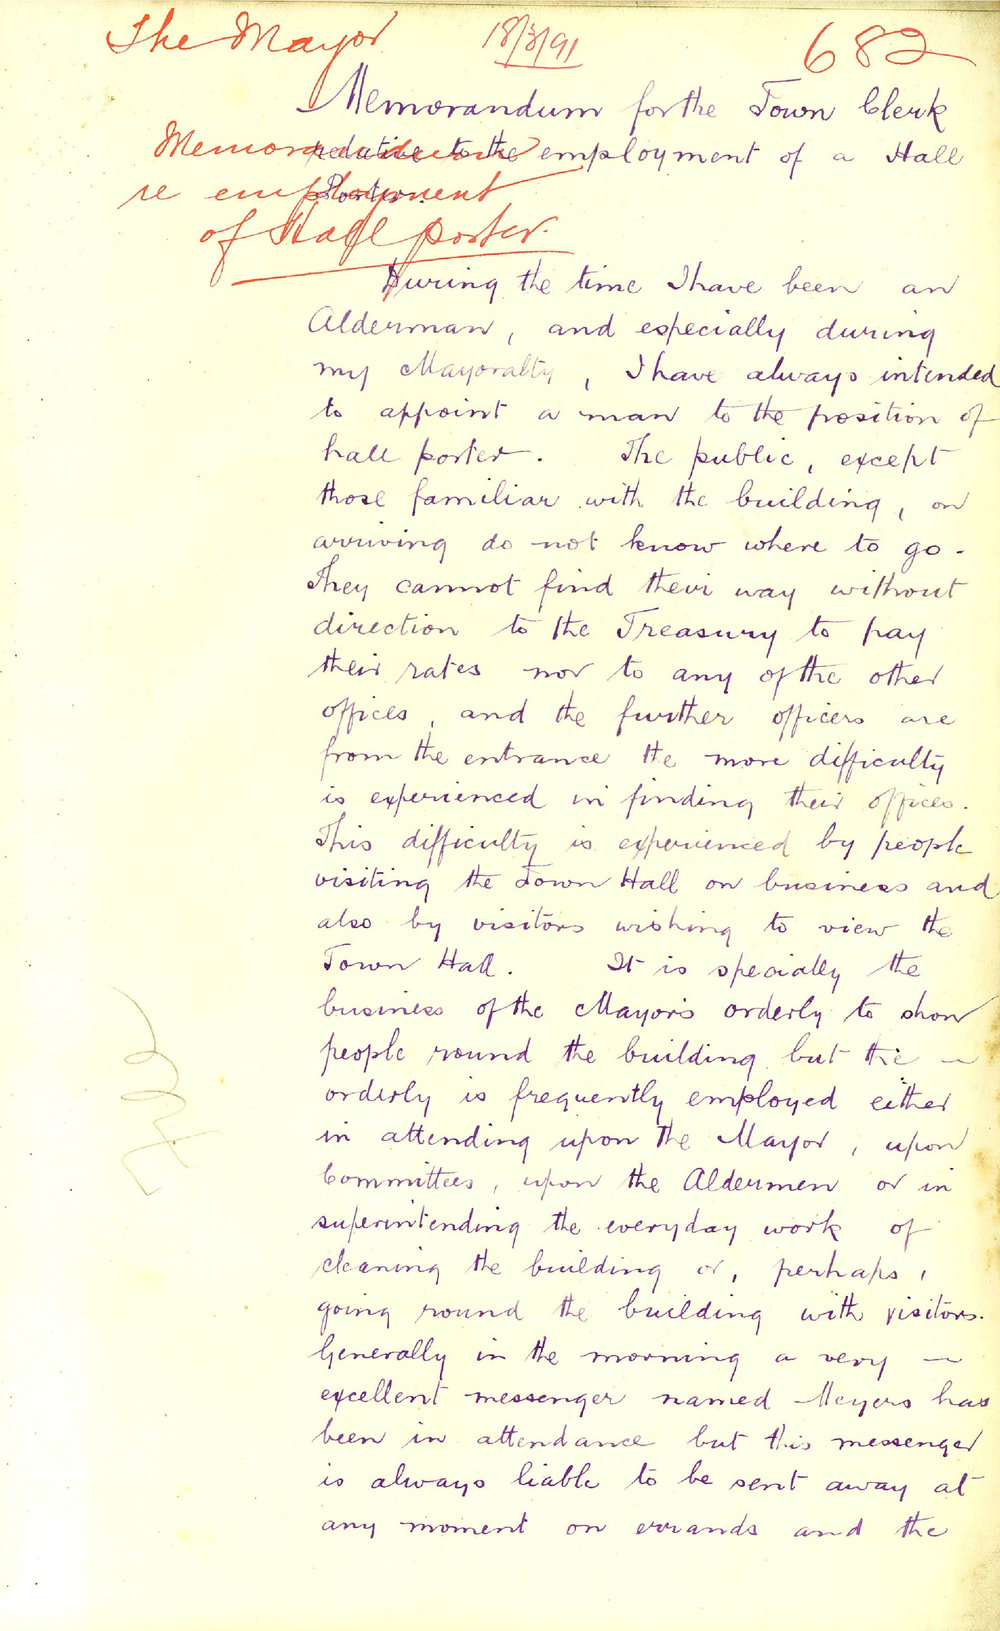 The Mayor 18/3/91 682
Memorandum for the Town Clerk
relative to the employment of a Hall
Porter.
Memorandum
re employment
of Hall porter.
During the time I have been an
Alderman, and especially during
my Mayoralty, I have always intended
to appoint a man to the position of
hall porter. The public, except
those familiar with the building, on
arriving do not know where to go -
They cannot find their way without
direction to the Treasury to pay
their rates nor to any of the other
offices, and the further officers are
from the entrance the more difficulty
is experienced in finding their offices.
This difficulty is experienced by people
visiting the Town Hall on business and
also by visitors wishing to view the
Town Hall. It is specially the
business of the Mayor's orderly to show
people round the building but the —
orderly is frequently employed either
in attending upon the Mayor, upon
Committees, upon the Aldermen or in
superintending the everyday work of
cleaning the building or, perhaps,
going round the building with visitors.
Generally in the morning a very —
excellent messenger named Meyers has
been in attendance but this messenger
is always liable to be sent away at
any moment on errands and the